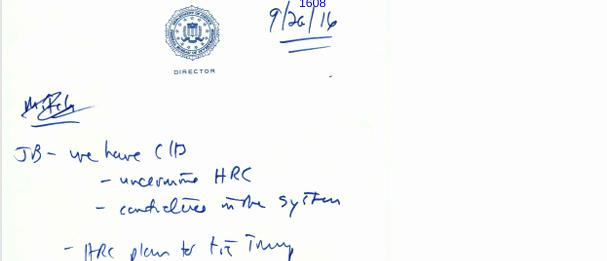 1608
9/26/16
DIRECTOR
JB - we have CID
- undermine HRC
- confidence in the system
- HRC plan to tie Trump